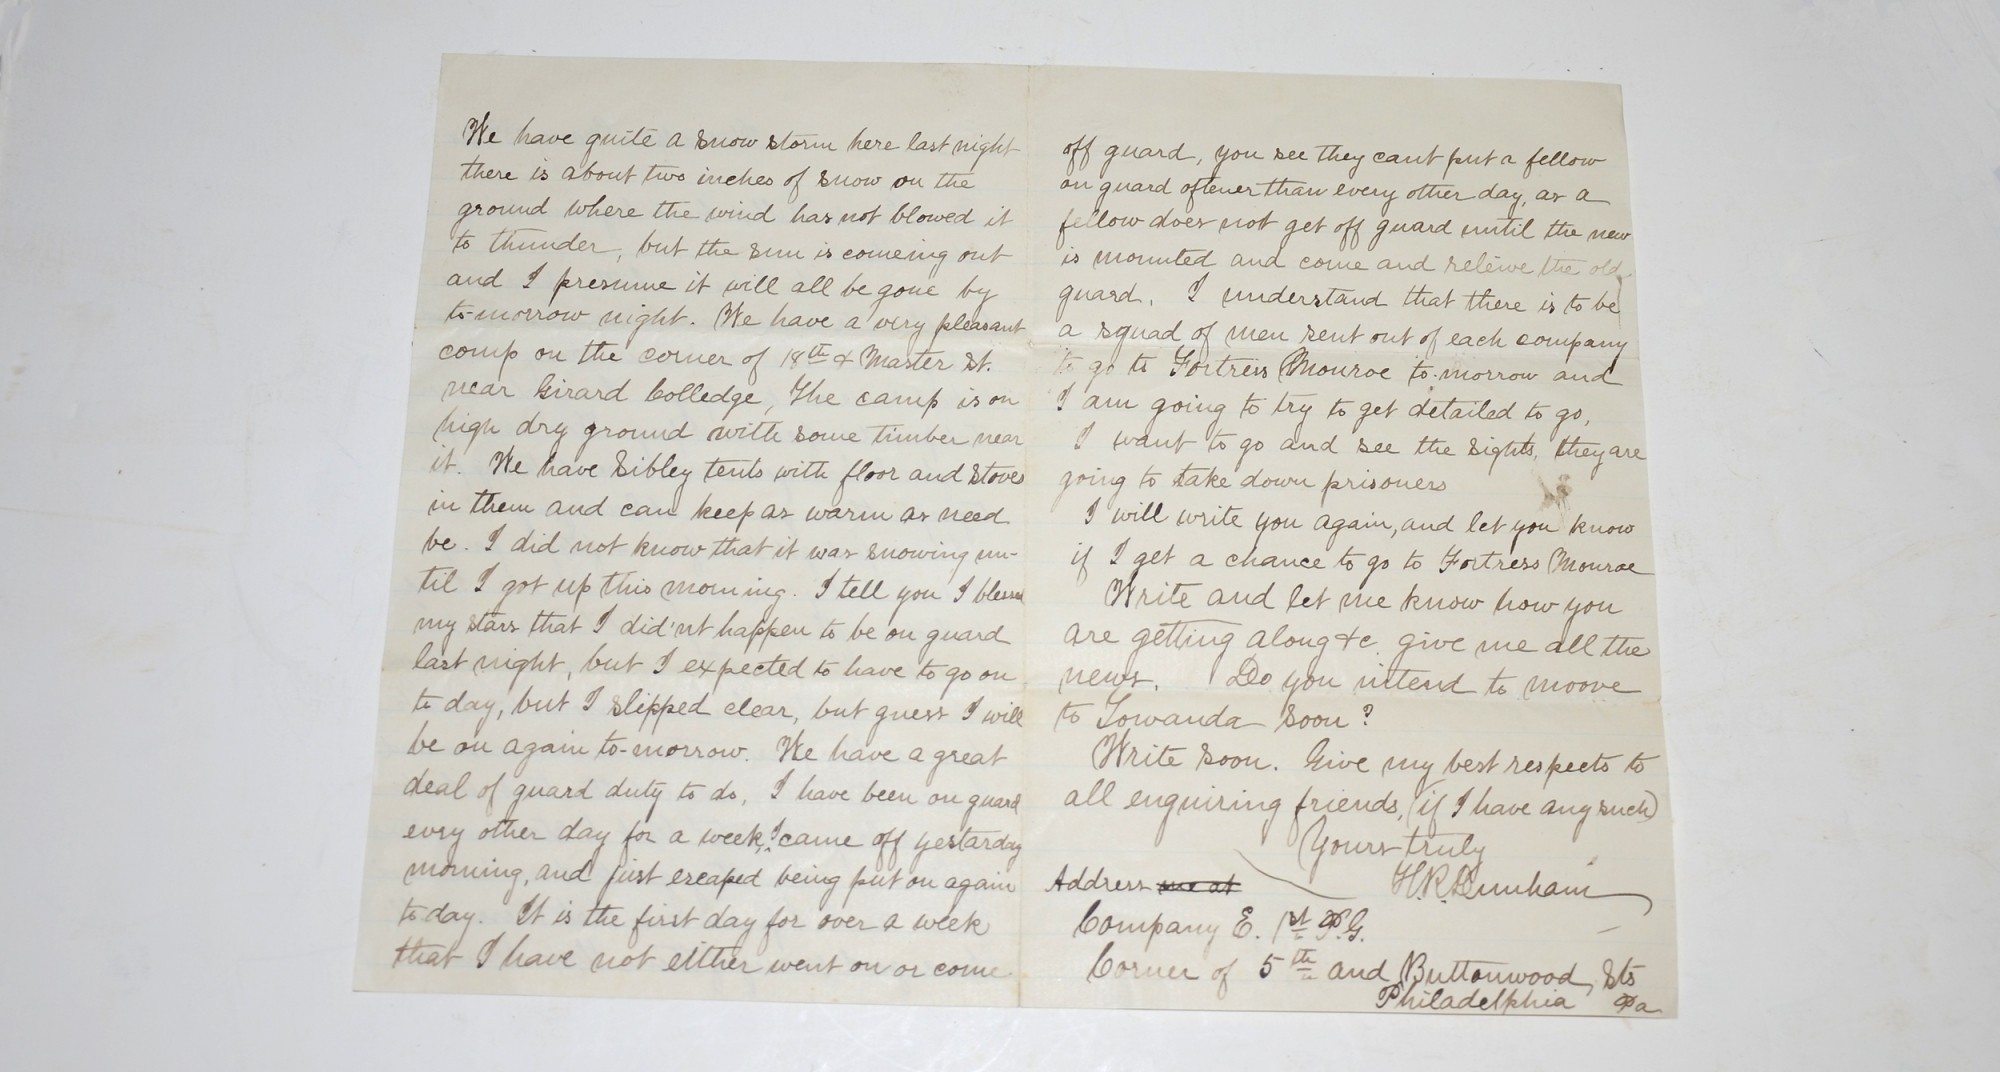 We have quite a snow storm here last night
there is about two inches of snow on the
ground where the wind has not blowed it
to thunder, but the sun is comeing out
and I presume it will all be gone by
to-morrow night. We have a very pleasant
comp on the corner of 18th & Master St.
near Girard Colledge, The camp is on
high dry ground with some timber near
it. We have Sibley tents with floor and stoves
in them and can keep as warm as need
be. I did not know that it was snowing un-
til I got up this morning. I tell you I blessed
my stars that I did'nt happen to be on guard
last night, but I expected to have to go on
to day, but I slipped clear, but guess I will
be on again to-morrow. We have a great
deal of guard duty to do, I have been on guard
evry other day for a week, I came off yestarday
morning, and just escaped being put on again
to day. It is the first day for over a week
that I have not either went on or come
off guard, you see they cant put a fellow
on guard oftener than every other day, as a
fellow does not get off guard until the new
is mounted and come and releive the old
guard. I understand that there is to be
a squad of men sent out of each company
to go to Fortress Monroe to-morrow and
I am going to try to get detailed to go,
I want to go and see the sights, they are
going to take down prisoners
I will write you again, and let you know
if I get a chance to go to Fortress Monroe
Write and let me know how you
are getting along &c. give me all the
news. Do you intend to moove
to Towanda soon?
Write soon. Give my best respects to
all enquiring friends, (if I have any such)
Yours truly
H.R. Dunham
Address me at
Company E. 1st P.G.
Corner of 5th and Buttonwood, Sts
Philadelphia Pa